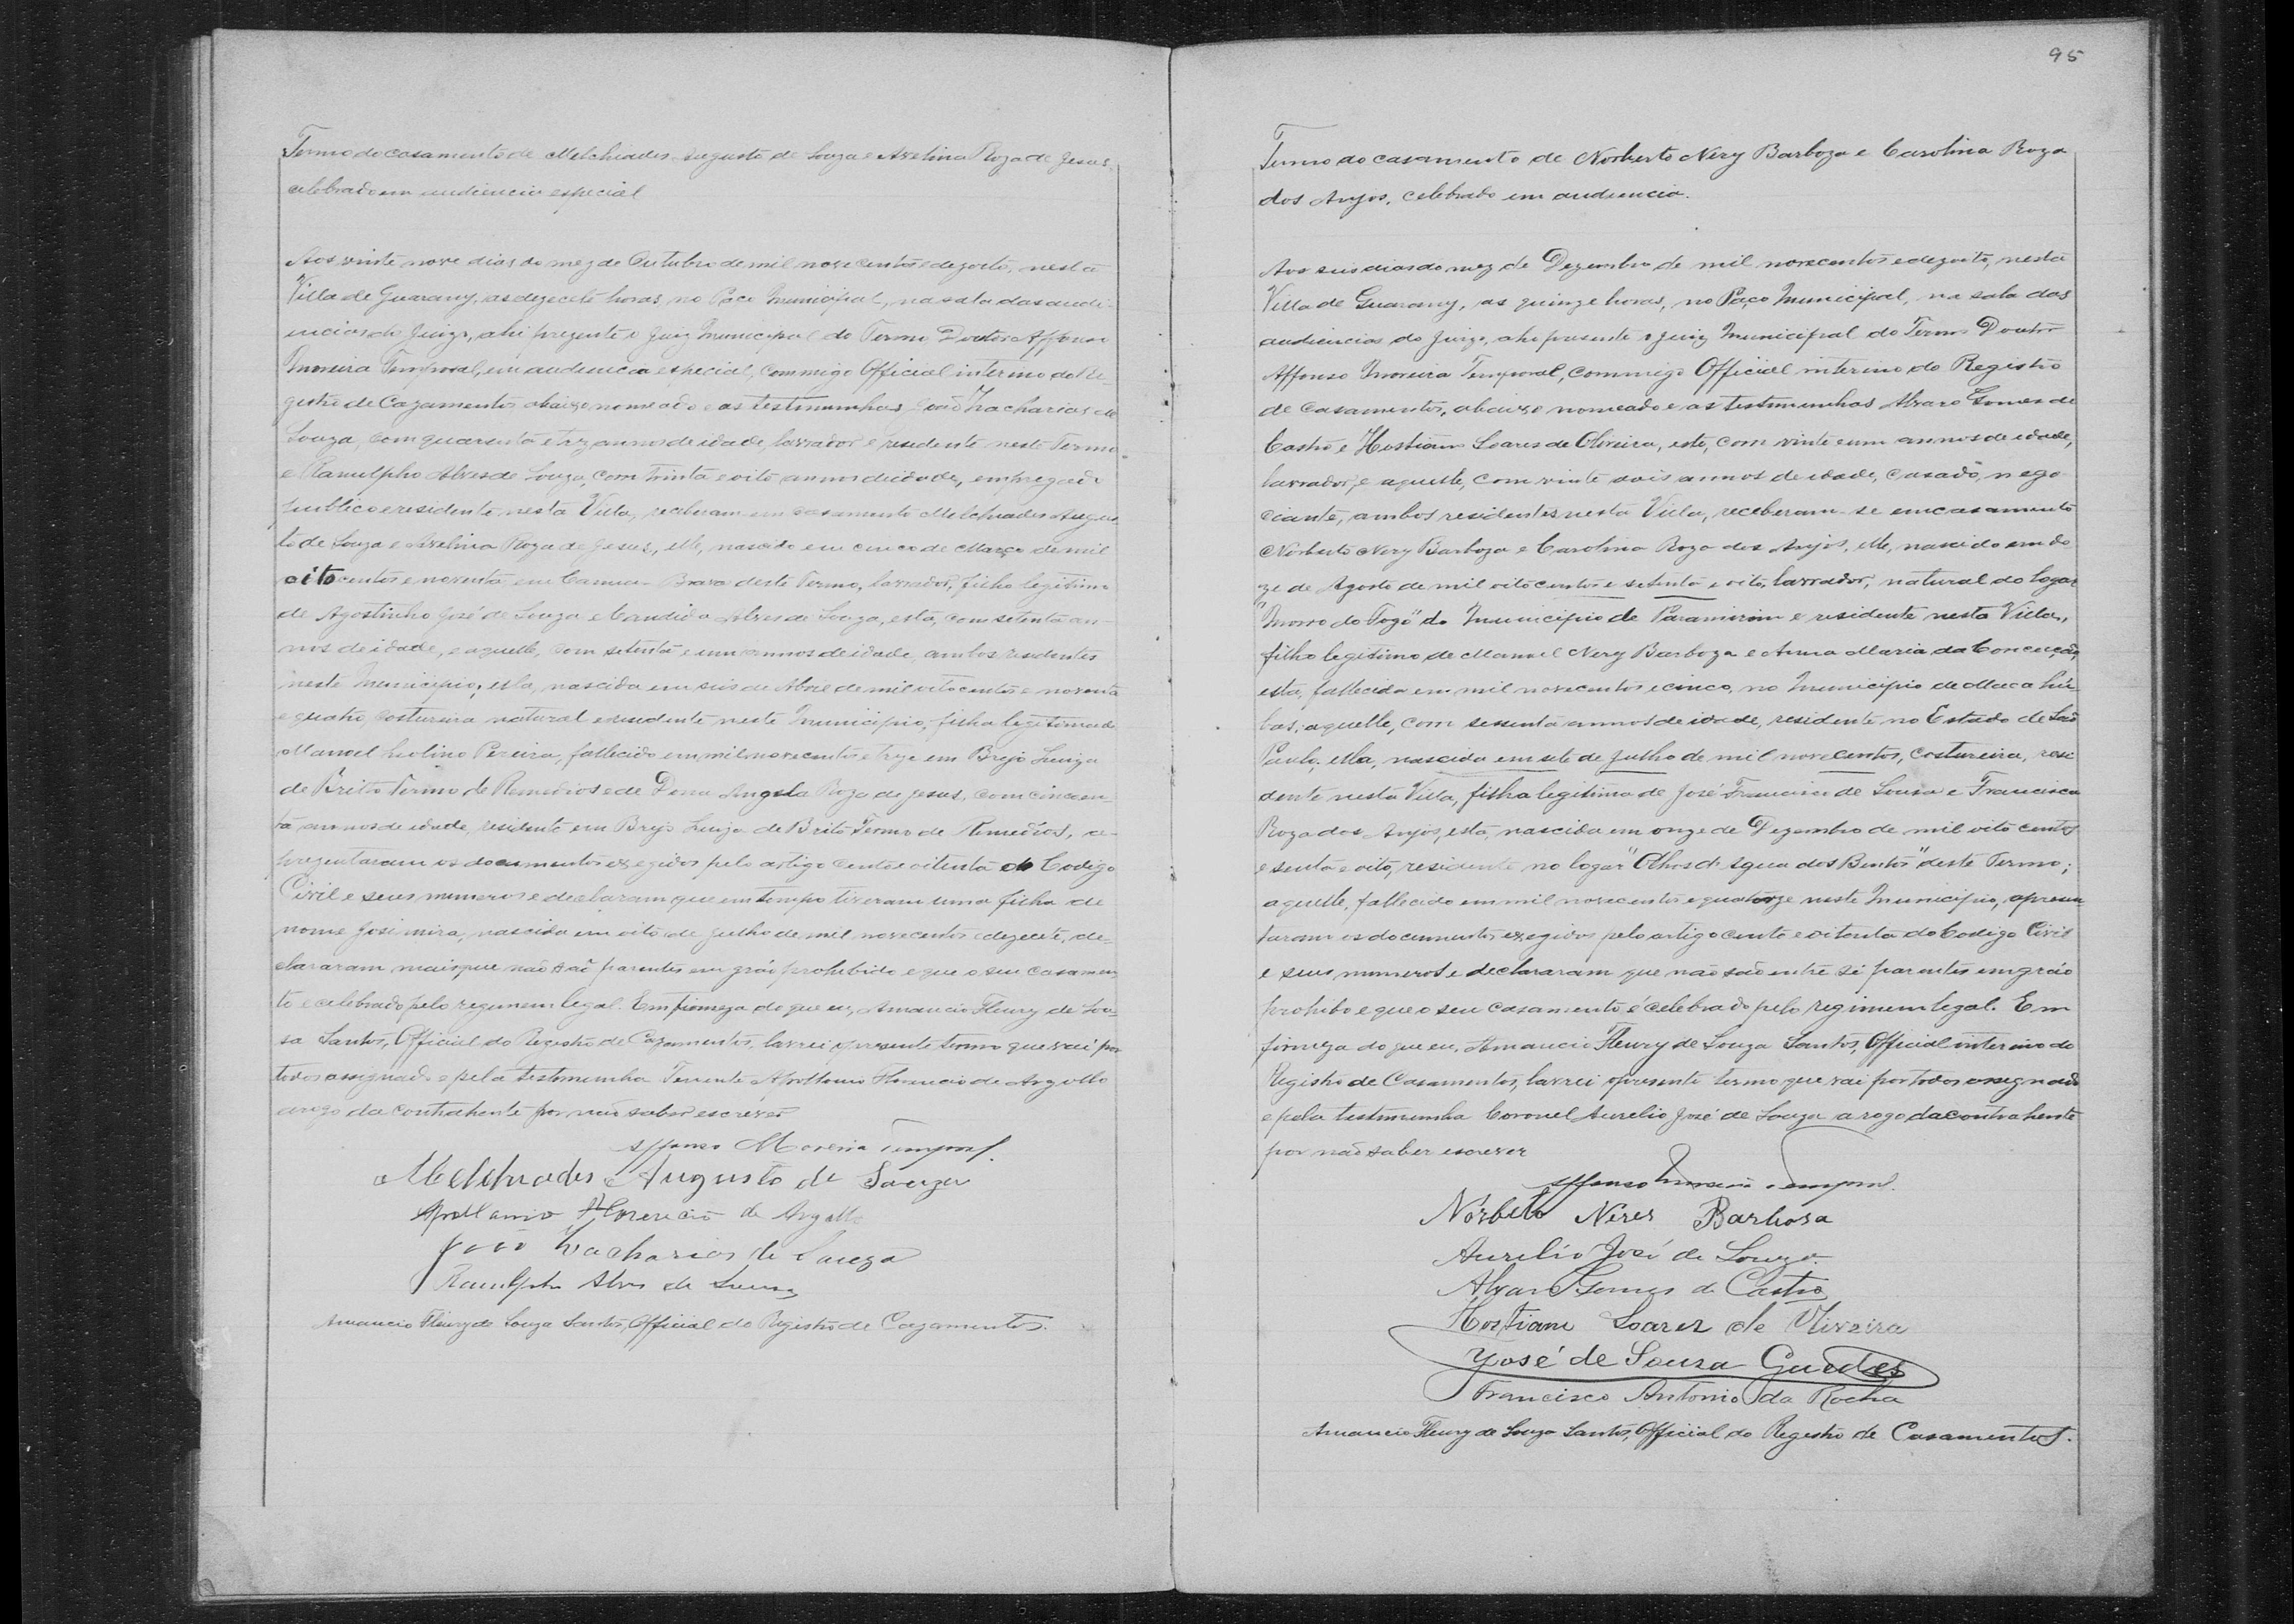 Termo do casamento de Melchiades Augusto de Souza e Avelina Roza de Jesus,
celebrado em audiencia especial
Aos vinte nove dias do mez de Outubro de mil novecentos e dezoito, nesta
Villa de Guarany, as dezecete horas, no Paco Municipal, na sala das audi-
encias do Juizo, ahi prezente o Juiz Municipal do Termo Doutor Affonso
Moreira Temporal, em audiencia especial, commigo Official interino do Re-
gistro de Cazamentos abaixo nomeado e as testimunhas João Zacharias de
Souza, com quarenta e trez annos de idade, lavrador e residente neste Termo
e Ranulpho Alves de Souza, com trinta e oito annos de idade, empregado
publico e residente nesta Villa, receberam em casamento Melchiades Augus
to de Souza e Avelina Roza de Jesus, elle, nascido em cinco de Março de mil
oitocentos e noventa em Canna Brava deste Termo, lavrador, filho legitimo
de Agostinho José de Souza e Candida Alves de Souza, esta, com setenta an-
nos de idade, e aquelle, com setenta e um annos de idade, ambos residentes
neste Municipio, ella, nascida em seis de Abril de mil oito centos e noventa
e quatro, costureira natural e residente neste Municipio, filha legitima de
Manoel Leolino Pereira, fallecido em mil novecentos e treze em Brejo Luiza
de Brito Termo de Remedios e de Dona Angela Roza de Jesus, com cincoen-
ta annos de idade, residente em Brejo Luiza de Brito Termo de Remedios, a-
prezentaram os documentos exegidos pelo artigo cento e oitenta do Codigo
Civil e seus numeros e declaram que em tempo tiveram uma filha de
nome Josimira, nascida em oito de Julho de mil novecentos e dezecete, de-
clararam mais que não são parentes em gráo prohibido e que o seu casamen
to e celebrado pelo regimem legal. Em firmeza do que eu, Amancio Fleury de Sou-
sa Santos, Official do Registro de Cazamentos, lavrei o presente termo que vai por
todos assignado e pela testimunha Tenente Apollonio Florencio de Argollo
arogo da contrahente por não saber escrever
Affonso Moreira Temporal.
Melchiades Augusto de Souza
Apollonio Florencio de Argollo
João Zacharias de Souza
Ranulpho Alves de Souza
Amancio Fleury de Souza Santos, Official do Registro de Cazamentos.
95
Termo do casamento de Norberto Nery Barboza e Carolina Roza
dos Anjos, celebrado em audiencia.
Aos seis dias do mez de Dezembro de mil novecentos e dezoito, nesta
Villa de Guarany, as quinze horas, no Paço Municipal, na sala das
audiencias do Juizo, ahi presente o Juiz Municipal do Termo Doutor
Affonso Moreira Temporal, commigo Official interino do Registro
de casamentos, abaixo nomeado e as testimunhas Alvaro Gomes de
Castro e Hostiam Soares de Oliveira, este, com vinte e um annos de edade,
lavrador, e aquelle, com vinte seis annos de edade, casado, nego
ciante, ambos residentes nesta Villa, receberam-se em casamento
Norberto Nery Barboza e Carolina Roza dos Anjos, elle, nascido em do
ze de Agosto de mil oito centos e setenta e oito, lavrador, natural do logar
"Morro do Fogo" do Municipio de Paramirim e residente nesta Villa,
filho legitimo de Manoel Nery Barboza e Anna Maria da Conceição,
esta, fallecida em mil novecentos e cinco, no Municipio de Macahu-
bas; aquelle, com sessenta annos de idade, residente no Estado de São
Paulo, ella, nascida em sete de Julho de mil novecentos, costureira, resi
dente nesta Villa, filha legitima de José Francisco de Sousa e Francisca
Roza dos Anjos, esta, nascida em onze de Dezembro de mil oito centos
e senta e oito, residente no logar "Olhos d'Agua dos Bentos" deste Termo;
aquelle, fallecido em mil novecentos e quatorze neste Municipio, apresen
taram os documentos exegidos pelo artigo cento e oitenta do Codigo Civil
e seus numeros e declararam que não são entre si parentes em gráo
prohibo e que o seu casamento é celebrado pelo regimem legal. Em
firmeza do que eu, Amancio Fleury de Souza Santos, Official interino do
Registro de Casamentos, lavrei o presente termo que vai por todos assegnado
e pela testimunha Coronel Aurelio José de Souza a rogo da contrahente
por não saber escrever
Affonso Moreira Temporal.
Nórbeto Neres Barbosa
Aurelio José de Souza.
Alvaro Gomes de Castro
Hostiam Soares de Oliveira
José de Sousa Guedes
Francisco Antonio da Rocha
Amancio Fleury de Souza Santos, Official do Registro de Casamentos.